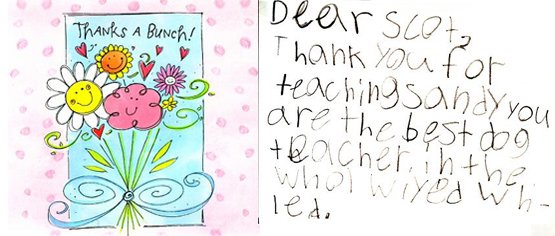 THANKS A BUNCH!
Dear Scot,
Thank you for
teaching sandy you
are the best dog
teacher. in the
whol wiyed whi-
led.